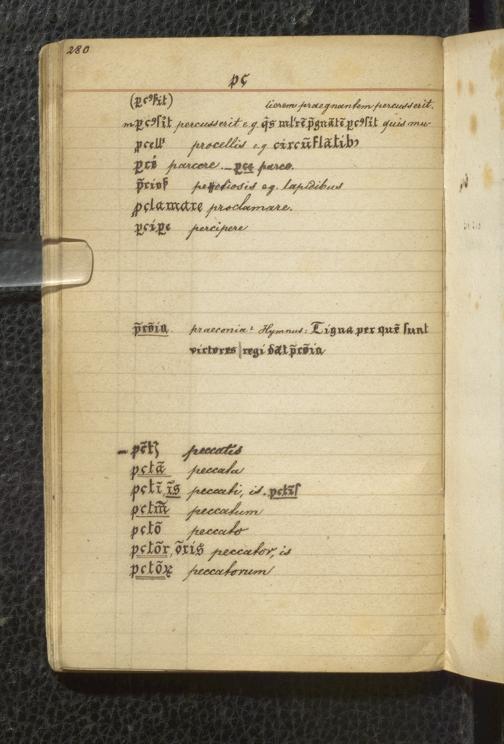 280
pç
(ꝑcꝰſit) lierem praegnantem percusserit.
ꝑcꝰſit percusserit e.g. q̄s ml'rē p̄gnātē ꝑcꝰſit quis mu-
procellis e.g. circūflatibꝫ
parcere parco
p̄ciosꝭ preciosis e.g. lapidibus
ꝓclamare proclamare.
ꝑciꝑe percipere
p̄cōia praeconia. Hymnus: Tigna per quē ſunt
victores | regi dāt p̄cōia
pc̄tꝭ peccatis
pctā peccata
pctī, īs peccati, is. pctīſ
pctm̄ peccatum
pctō peccato
pctōr, ōris peccator, is
pctōꝝ peccatorum